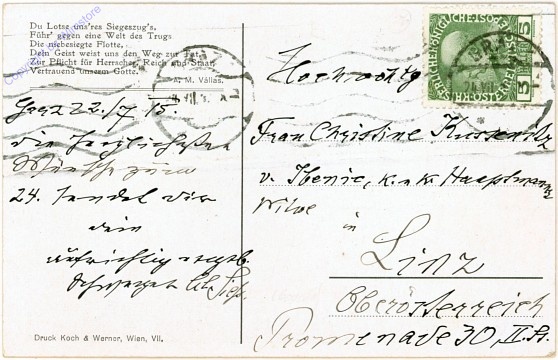 Du Lotse uns'res Siegeszug's,
Führ' gegen eine Welt des Trugs
Die niebesiegte Flotte,
Dein Geist weist uns den Weg zur Tat,
Zur Pflicht für Herrscher, Reich und Staat
Vertrauend unserm Gotte.
A. M. Vállas.
22./7 15.
die herzlichsten
Wünsche zum
24. sendet dir
dein
aufrichtig
Schwager
Hochwohlg
Frau Christine
v. k. u. k. Hauptmanns
Witwe
in
Linz
Oberösterreich
Promenade 30, II. St.
5 5
Druck Koch & Werner, Wien, VII.